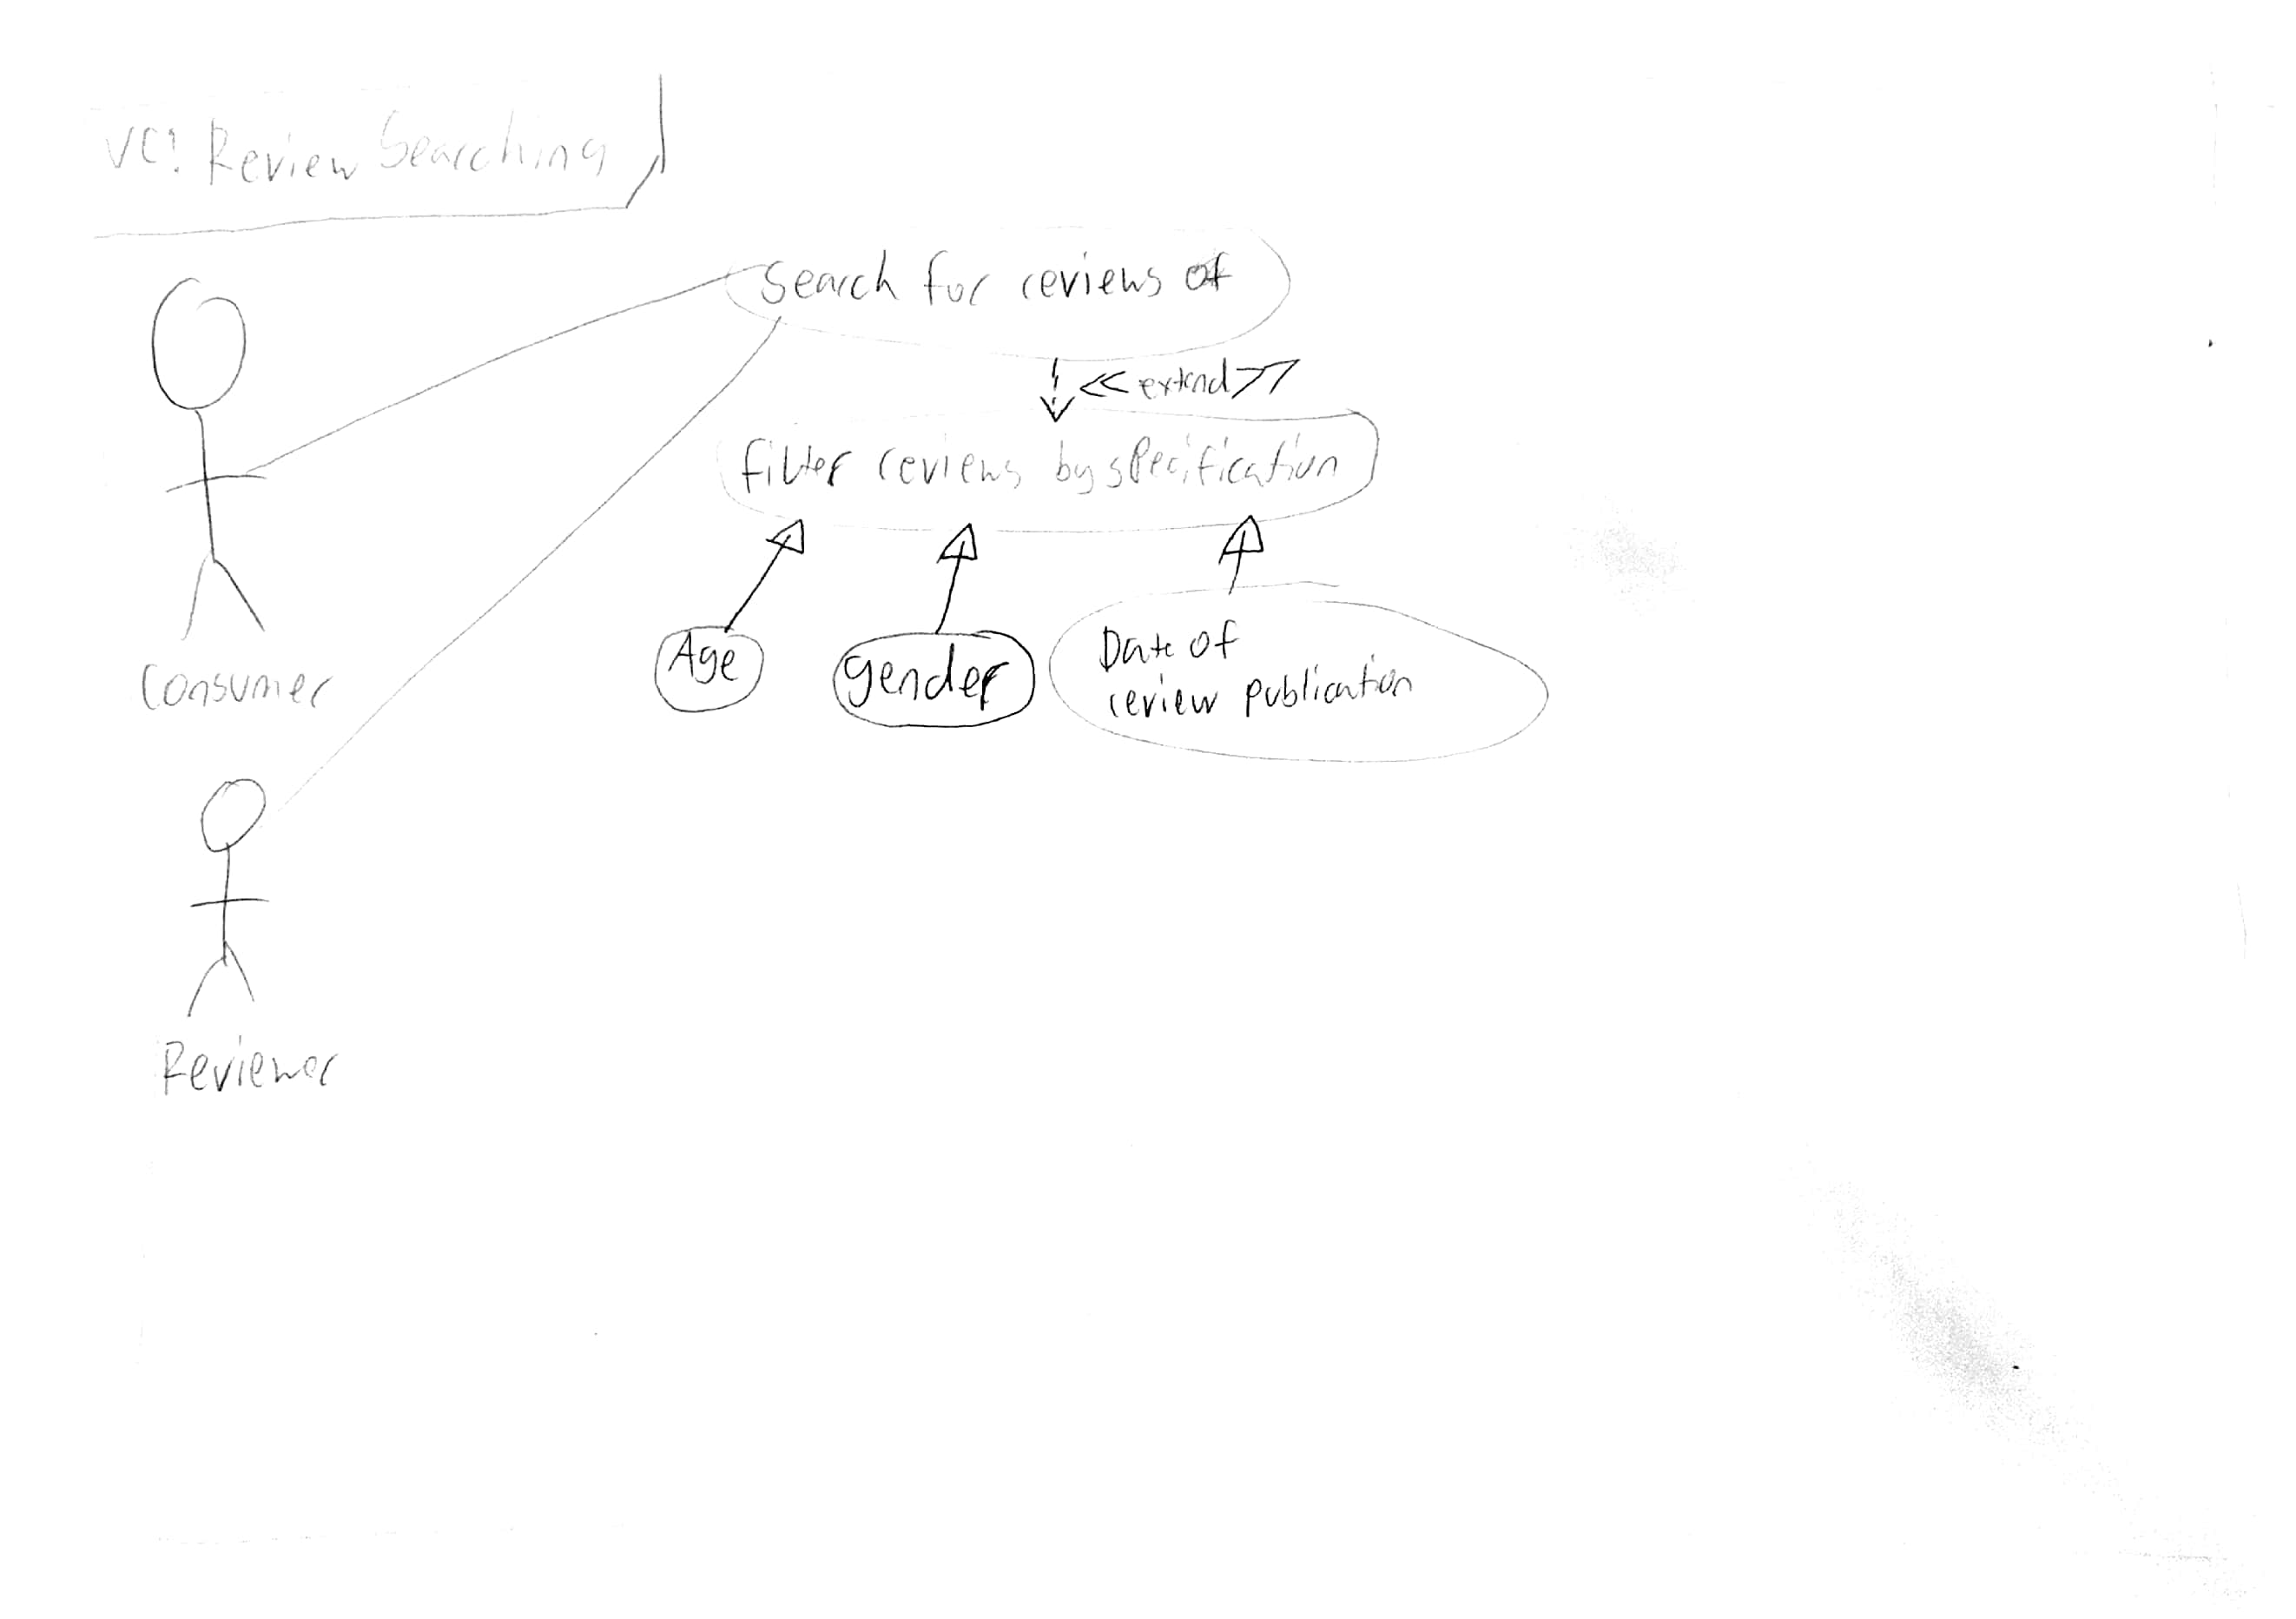 UC: Review Searching
Search for reviews of
<<extend>>
filter reviews by specification
Age
gender
Date of
review publication
Consumer
Reviewer